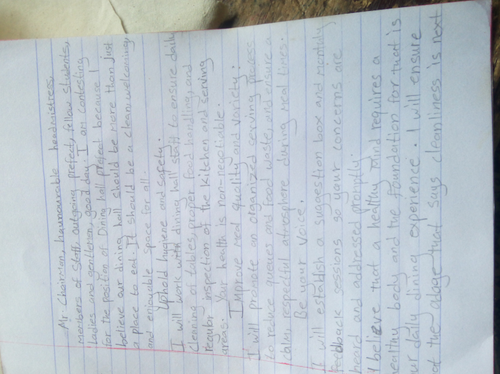 Mr. Chairman, haunourable headmistress
members of staff, outgoing prefects, fellow students,
ladies and gentlemen, good day. I am contesting
for the position of Dining hall prefect because I
believe our dining hall should be more than just
a place to eat. It should be a clean, welcoming,
and enjoyable space for all.
Uphold hygiene and safety.
I will work with dining hall staff to ensure daily
cleaning of tables, proper food handling, and
regular inspection of the kitchen and serving
areas. Your health is non-negotiable.
Improve meal quality and variety.
I will promote an organized serving process
to reduce queues and food waste, and ensure a
calm, respectful atmosphere during meal times.
Be your voice.
I will establish a suggestion box and monthly
feedback sessions so your concerns are
heard and addressed promptly.
I believe that a healthy mind requires a
healthy body and the foundation for that is
our daily dining experience. I will ensure
of the adage that says cleanliness is next